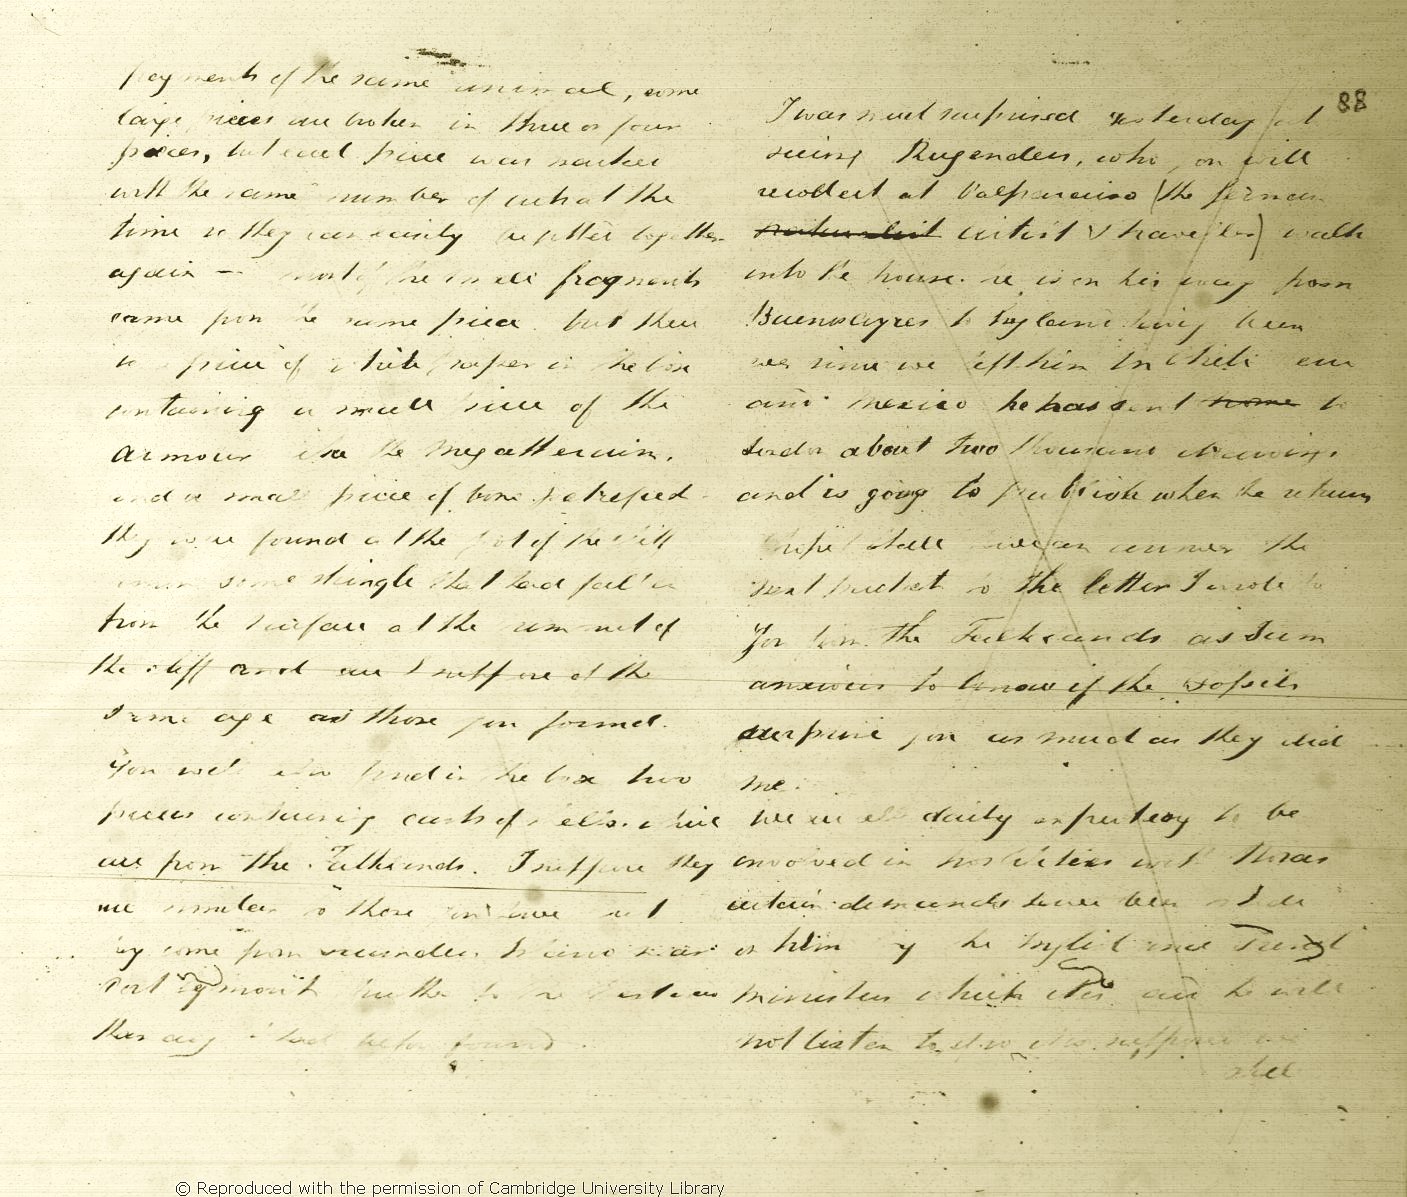 fragments of the same animal, some
large pieces are broken in three or four
pieces, but each piece was marked
with the same number of cuts at the
time so they can easily be fitted together
again — most of the small fragments
came from the same piece. but there
is a piece of white paper in the box
containing a small piece of the
armour of the Megatherium.
and a small piece of bone petrefied
they were found at the foot of the cliff
some shingle that had fallen
from the surface at the summit of
the cliff and are I suppose of the
same age as those you found.
You will also find in the box two
pieces containing casts of shells. which
are from the Falklands. I suppose they
are similar to those you have
they come from
but the to the
than any I had before found.
88
I was much surprised yesterday at
seeing Rugendas, who you will
recollect at Valparaiso (the German
naturalist artist & traveller) walk
into the house. he is on his way from
Buenos Ayres to England having been
ever since we left him in Chili
and Mexico he has sent home to
about two thousand drawings
and is going to publish when he returns
I hope I shall receive an answer the
next packet to the letter I wrote to
You from the Falklands as I am
anxious to know if the Fossils
surprise you as much as they did
me.
We are all daily expecting to be
involved in hostilities with Rosas
certain demands have been made
on him by the English and French
Ministers which they say he will
not listen to, so suppose we
shall
© Reproduced with the permission of Cambridge University Library